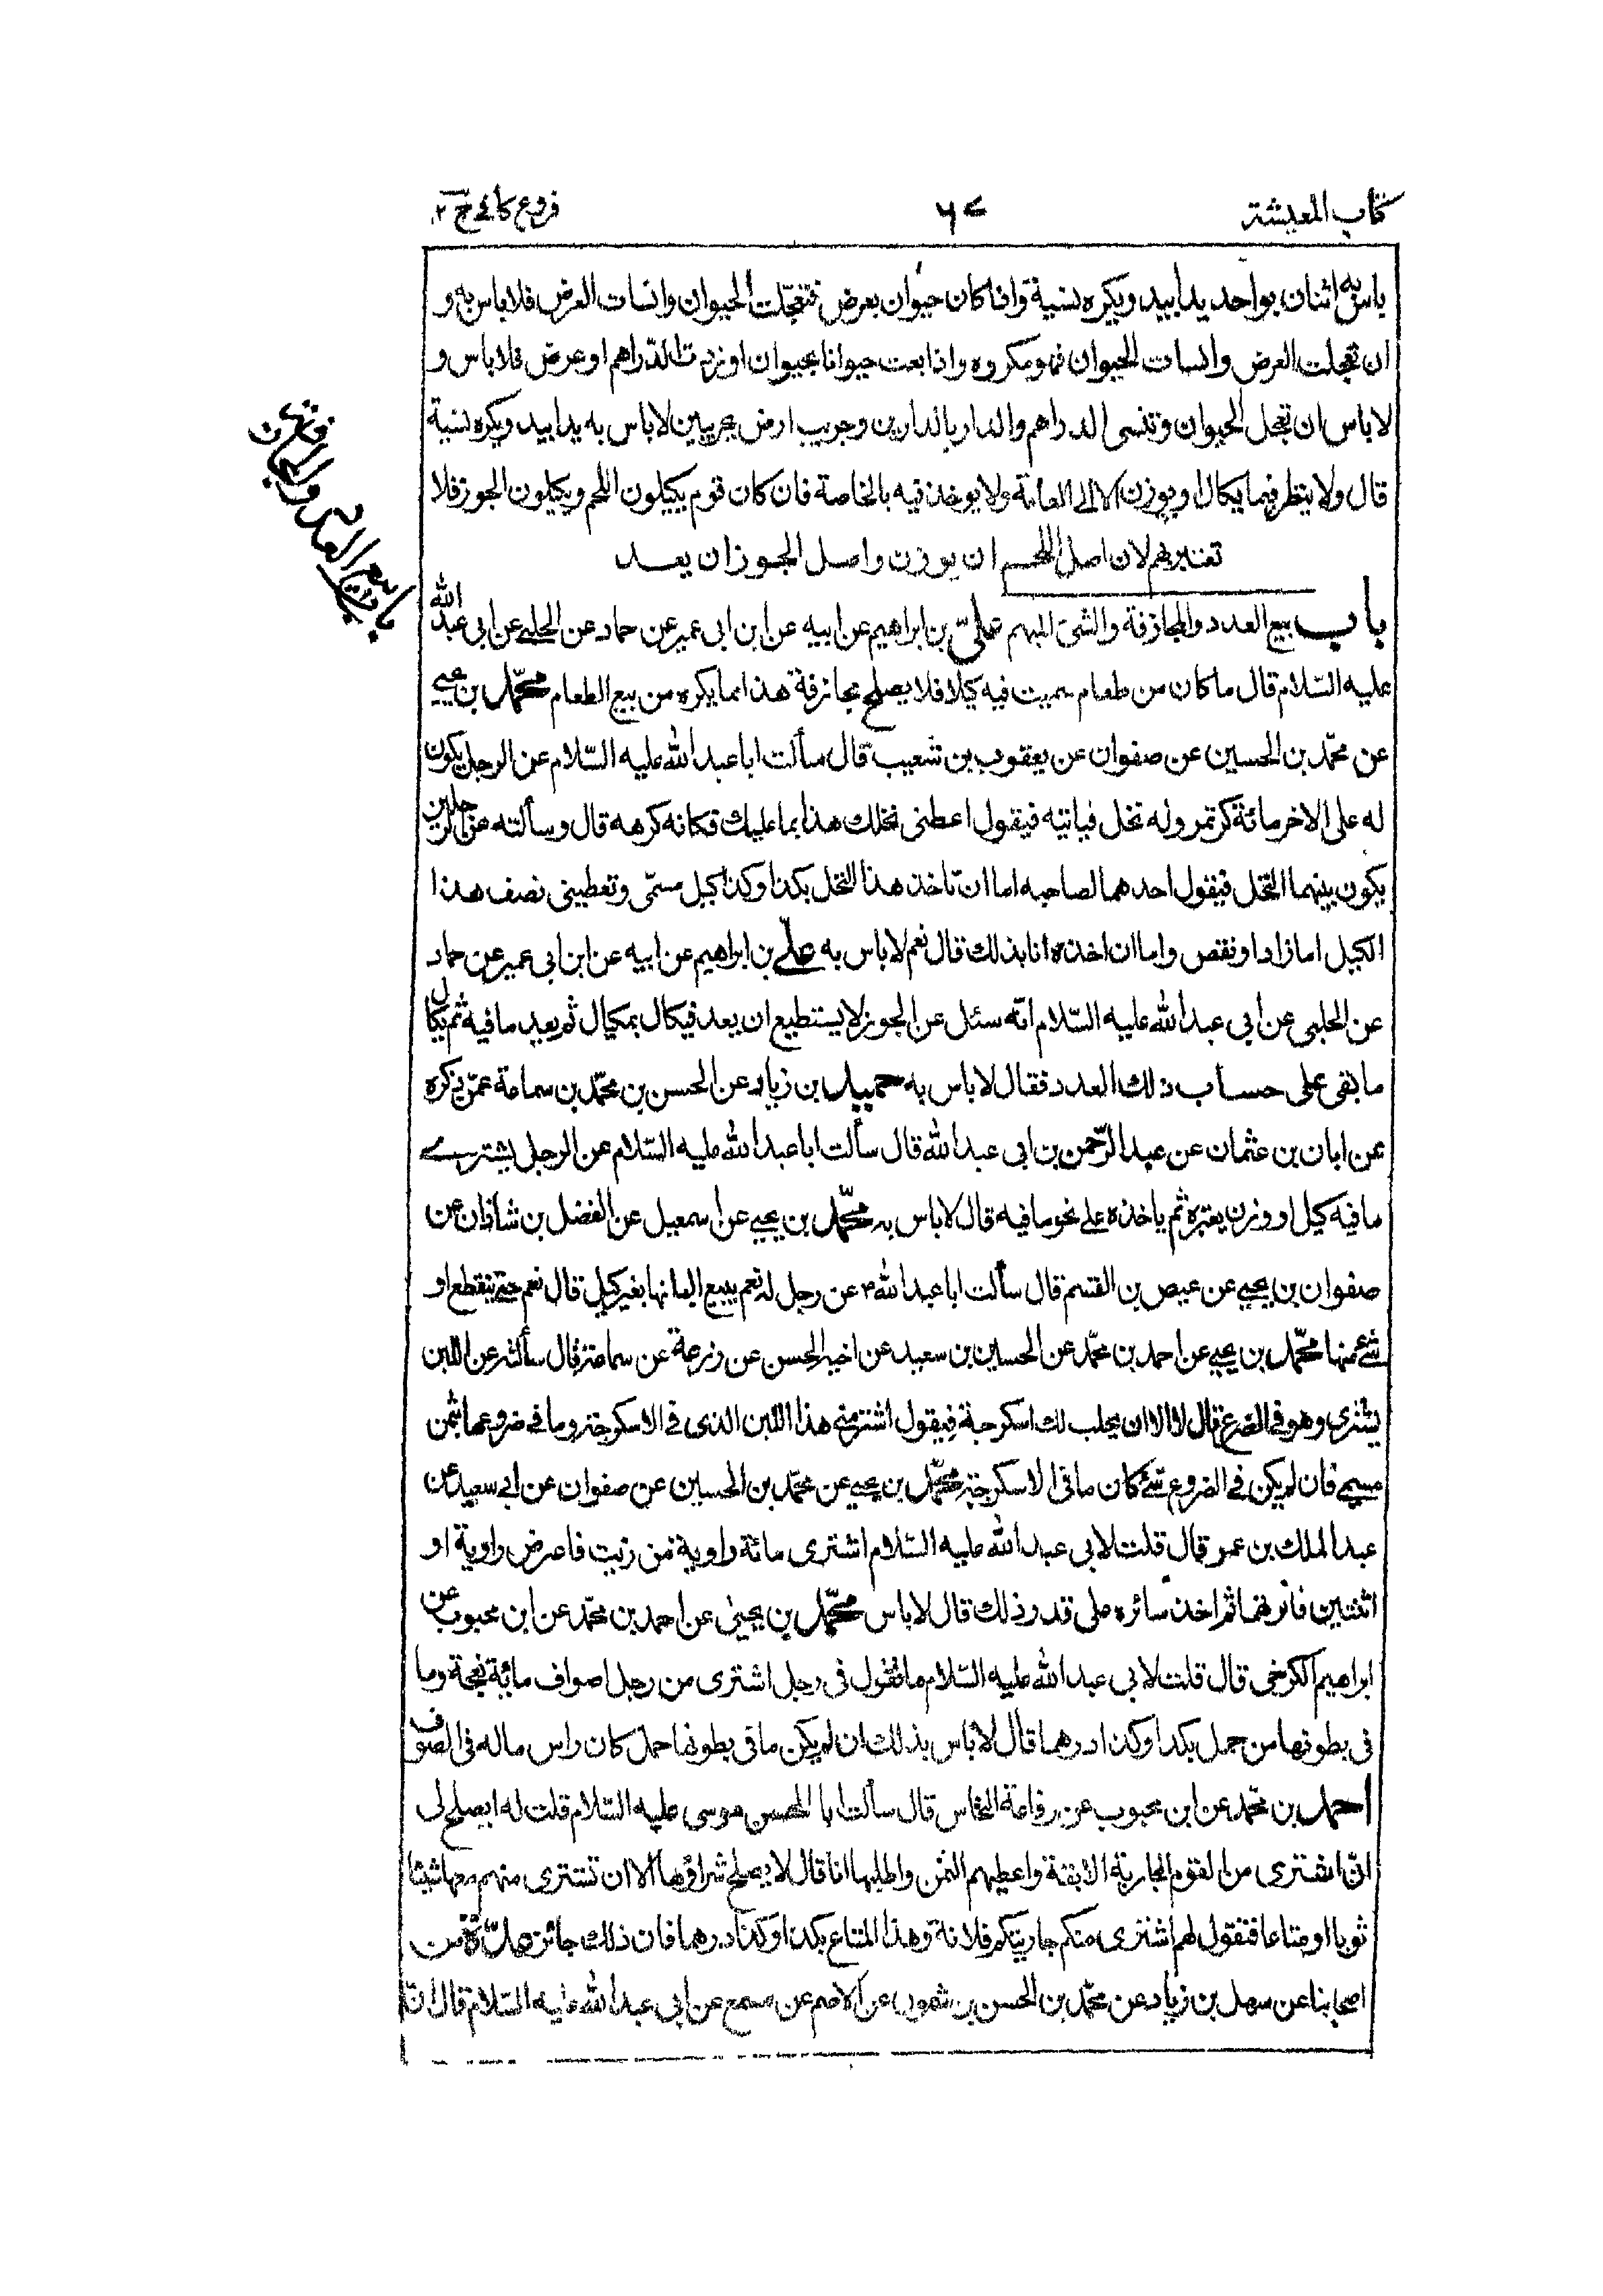 كتاب المعيشة ٦٧ فروع كافي ج ٢
باس به اثنان بواحد يدا بيد ويكره نسية واذا كان حيوان بعرض فتعجلت الحيوان وانسات العرض فلا باس به و
ان تعجلت العرض وانسات الحيوان فهو مكروه واذا بعت حيوانا بحيوان او زدت الدراهم او عرض فلا باس و
لا باس ان تعجل الحيوان وتنسى الدراهم والدار بالدارين وجريب ارض بجريبين لا باس به يدا بيد ويكره نسية
قال ولا ينظر فيما يكال او يوزن الا الى العامة ولا يوخذ فيه بالخاصة فان كان قوم يكيلون اللحم ويكيلون الجوز فلا
تعتبر بهم لان اصل اللحم ان يوزن واصل الجوز ان يعد
باب بيع العدد والمجازفة والشئ المبهم علىّ بن ابراهيم عن ابيه عن ابن ابى عمير عن حماد عن الحلبي عن ابي عبد الله
عليه السّلام قال ما كان من طعام سميت فيه كيلا فلا يصلح مجازفة هذا مما يكره من بيع الطعام محمّد بن يحيى
عن محمّد بن الحسين عن صفوان عن يعقوب بن شعيب قال سألت ابا عبد الله عليه السّلام عن الرجل يكون
له على الاخر مائة كر تمر وله نخل فياتيه فيقول اعطنى نخلك هذا بما عليك فكانه كرهه قال وسألته عن الرجلين
يكون بينهما النخل فيقول احدهما لصاحبه اما ان تاخذ هذا النخل بكذا وكذا كيل مسمّى وتعطينى نصف هذا
الكيل اما زاد او نقص واما ان اخذه انا بذلك قال نعم لا باس به علي بن ابراهيم عن ابيه عن ابن ابى عمير عن حماد
عن الحلبى عن ابي عبد الله عليه السّلام انّه سئل عن الجوز لا يستطيع ان يعد فيكال بمكيال ثم يعد ما فيه ثم يكال
ما بقى على حساب ذلك العدد فقال لا باس به حميد بن زياد عن الحسن بن محمّد بن سماعة عمّن ذكره
عن ابان بن عثمان عن عبد الرّحمن بن ابى عبد الله قال سألت ابا عبد الله عليه السّلام عن الرجل يشتري
ما فيه كيل او وزن يعتبره ثم ياخذه على نحو ما فيه قال لا باس به محمّد بن يحيى عن اسمعيل عن الفضل بن شاذان عن
صفوان بن يحيى عن عيص بن القسم قال سألت ابا عبد الله ع عن رجل له نعم يبيع البانها بغير كيل قال نعم حتى ينقطع او
شئ منها محمّد بن يحيى عن احمد بن محمّد عن الحسين بن سعيد عن اخيه الحسن عن زرعة عن سماعة قال سألته عن اللبن
يشترى وهو في الضرع قال لا الا ان يحلب لك اسكرجة فيقول اشتر منى هذا اللبن الذى في الاسكرجة وما في ضروعها بثمن
مسمى فان لم يكن في الضروع شئ كان ما فى الاسكرجة محمّد بن يحيى عن محمّد بن الحسين عن صفوان عن ابي سعيد عن
عبد الملك بن عمرو قال قلت لابى عبد الله عليه السّلام اشترى مائة راوية من زيت فاعرض راوية او
اثنتين فاتزنهما ثم اخذ سائره على قدر ذلك قال لا باس محمّد بن يحيى عن احمد بن محمّد عن ابن محبوب عن
ابراهيم الكرخى قال قلت لابى عبد الله عليه السّلام ما تقول فى رجل اشترى من رجل اصواف مائة نعجة وما
فى بطونها من حمل بكذا وكذا درهما قال لا باس بذلك ان لم يكن ما فى بطونها حمل كان راس ماله فى الصوف
احمد بن محمّد عن ابن محبوب عن رفاعة النخاس قال سألت ابا الحسن موسى عليه السّلام قلت له ايصلح لى
ان اشترى من القوم الجارية الابقة واعطيهم الثمن واطلبها انا قال لا يصلح شراؤها الا ان تشترى منهم معها شيئا
ثوبا او متاعا فتقول لهم اشترى منكم جاريتكم فلانة وهذا المتاع بكذا وكذا درهما فان ذلك جائز عدّة من
اصحابنا عن سهل بن زياد عن محمّد بن الحسن بن شمون عن الاصم عن مسمع عن ابى عبد الله عليه السّلام قال ان
باب بيع العدد والمجازفة